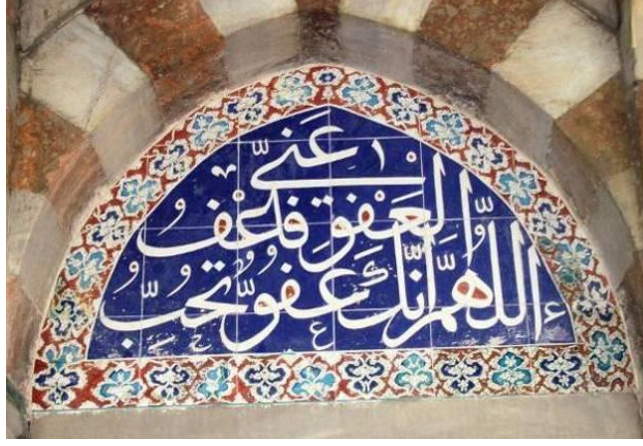 اللهم إنك عفو تحب
العفو فاعف
عني